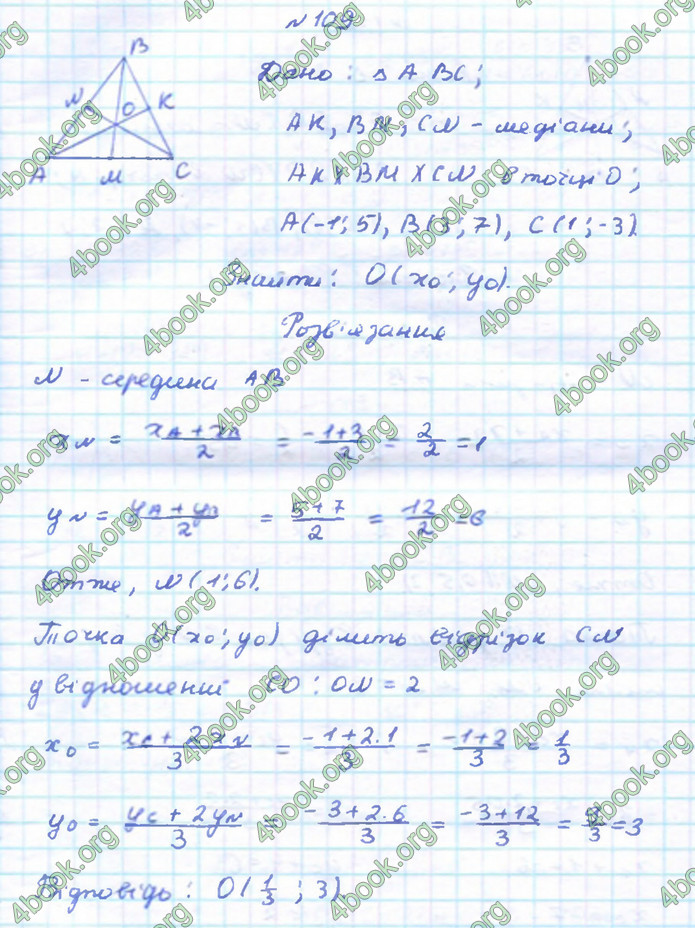 № 109
B
N O K
A M C
Дано: △ABC;
AK, BM, CN - медіани;
AK X BM X CN в точці O;
A(-1; 5), B(3; 7), C(1; -3).
Знайти: O(x₀; y₀).
Розв'язання
N - середина AB
x_N = (x_A + x_B)/2 = (-1+3)/2 = 2/2 = 1
y_N = (y_A + y_B)/2 = (5+7)/2 = 12/2 = 6
Отже, N(1; 6).
Точка O(x₀; y₀) ділить відрізок CN
у відношенні CO : ON = 2
x₀ = (x_C + 2x_N)/3 = (-1+2·1)/3 = (-1+2)/3 = 1/3
y₀ = (y_C + 2y_N)/3 = (-3+2·6)/3 = (-3+12)/3 = 9/3 = 3
Відповідь: O(1/3; 3).
4book.org